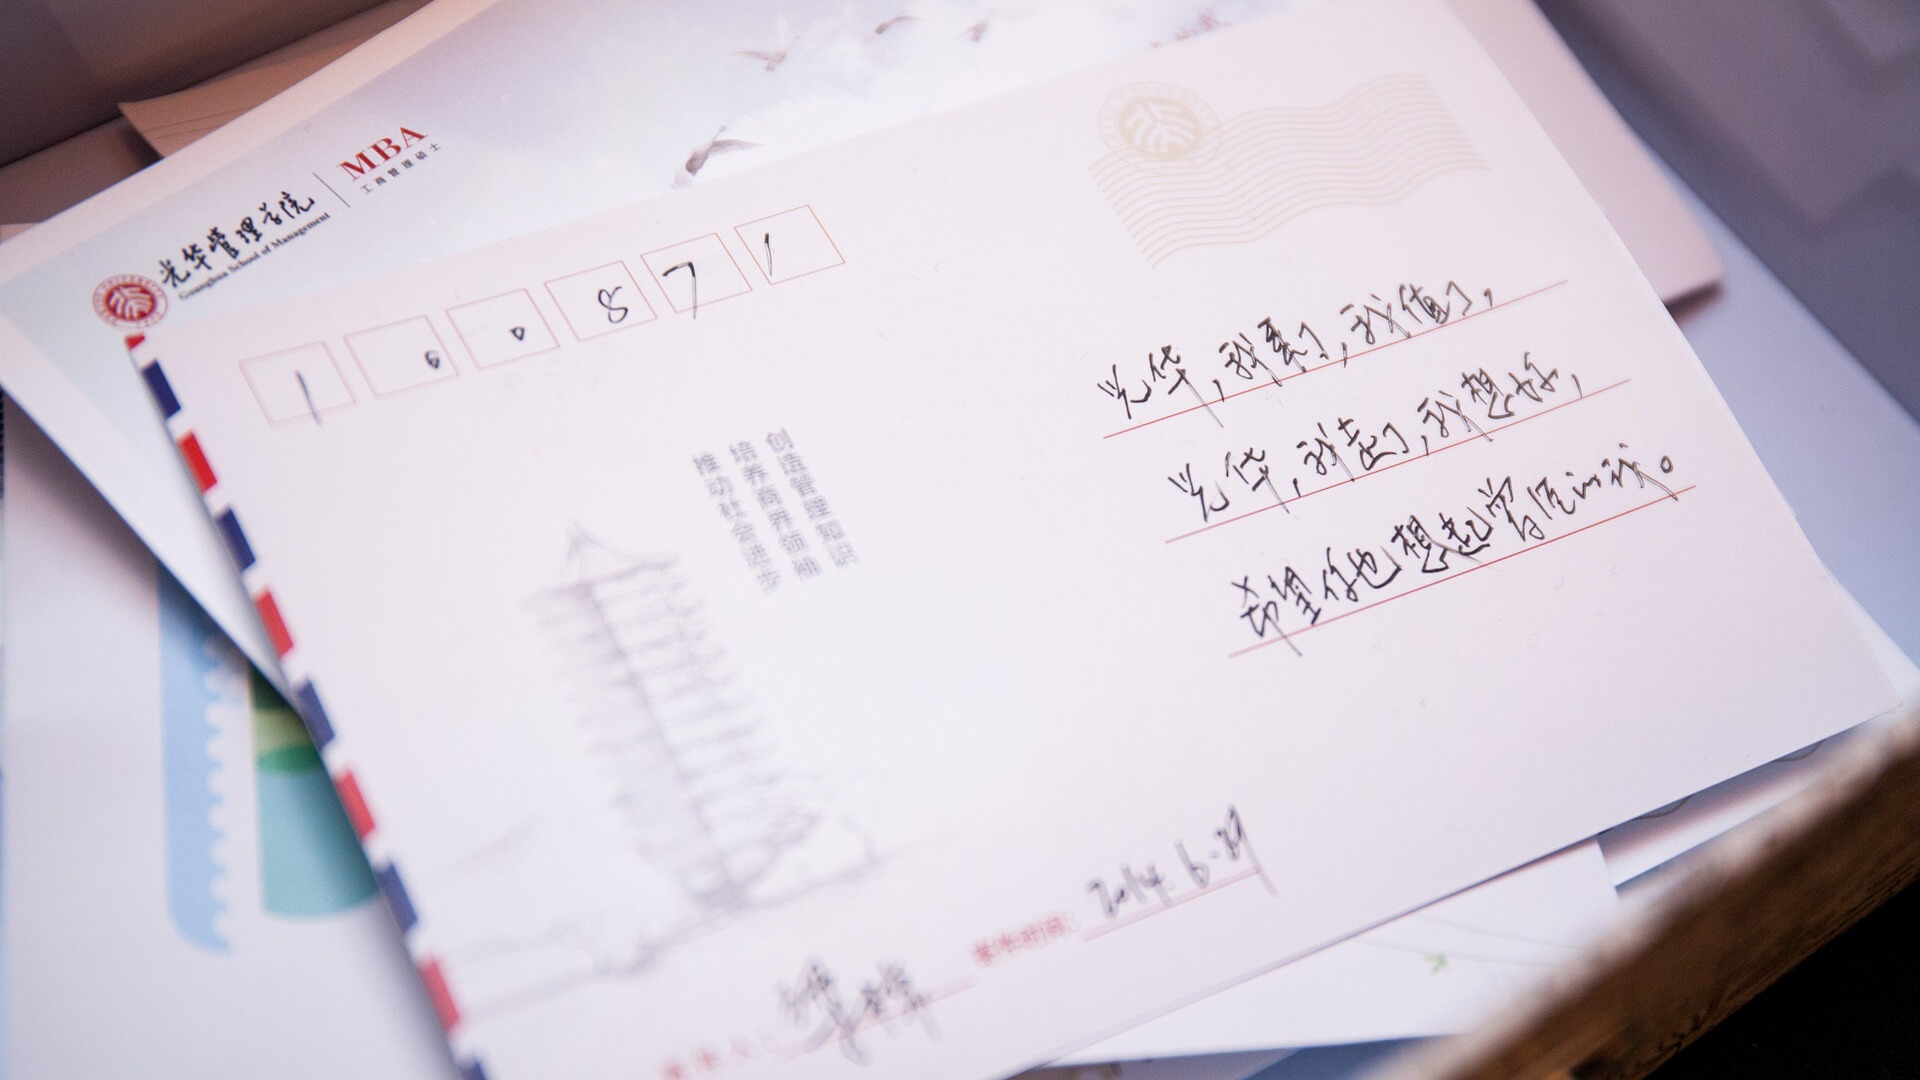 光华管理学院
Guanghua School of Management
MBA
工商管理硕士
1 6 0 8 7 1
创造管理知识
培养商界领袖
推动社会进步
光华,我来了,我值了,
光华,我走了,我想好,
希望你也想起曾经的我。
2014.6.29